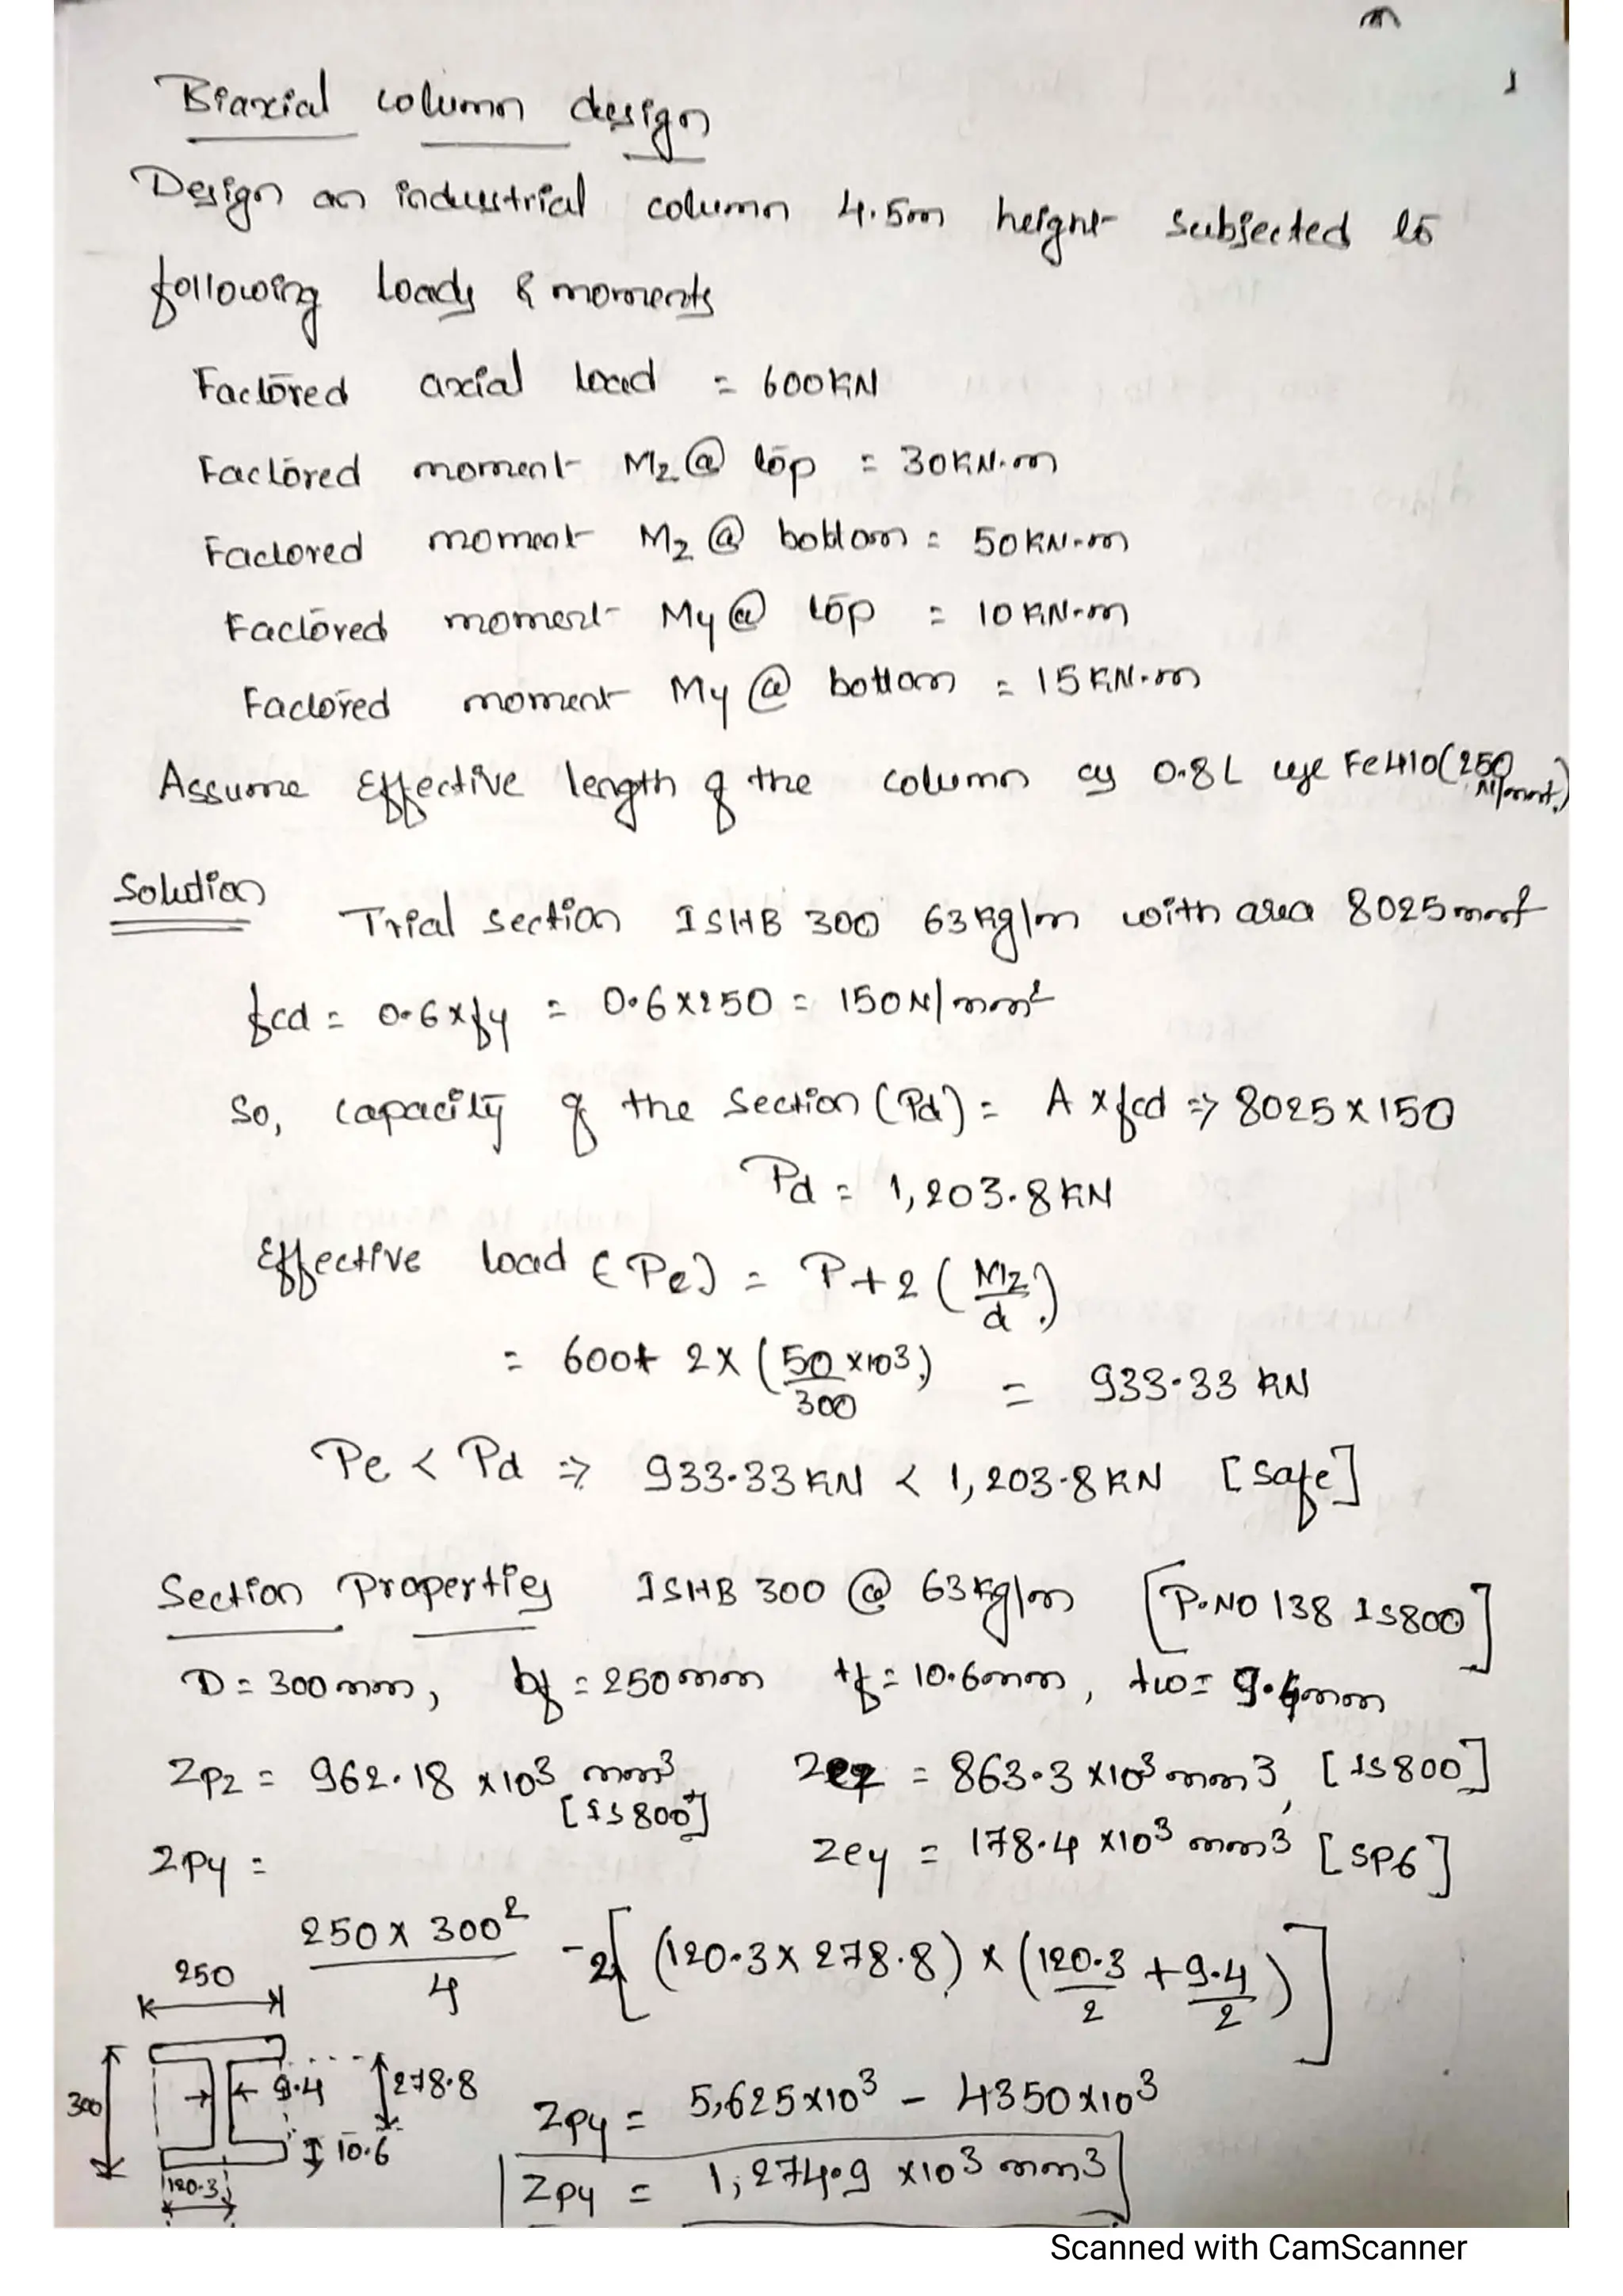 Biaxial column design
Design an industrial column 4.5m height subjected to
following loads & moments
Factored axial load = 600KN
Factored moment Mz @ top = 30KN.m
Factored moment Mz @ bottom = 50KN.m
Factored moment My @ top = 10KN.m
Factored moment My @ bottom = 15KN.m
Assume Effective length of the column as 0.8L use Fe410(250 N/mm².)
Solution Trial section ISHB 300 63kg/m with area 8025mm²
fcd = 0.6xfy = 0.6x250 = 150N/mm²
So, capacity of the section (Pd) = A x fcd => 8025 x 150
Pd = 1,203.8KN
Effective load (Pe) = P+2(Mz/d.)
= 600+ 2x(50 x10³/300) = 933.33 KN
Pe < Pd => 933.33KN < 1,203.8KN [Safe]
Section Properties ISHB 300 @ 63kg/m [P.NO 138 IS800]
D = 300mm, bf = 250mm tf = 10.6mm, tw = 9.4mm
Zpz = 962.18 x10³ mm³ [IS800] Zez = 863.3 x10³mm3, [IS800]
Zpy = Zey = 178.4 x10³ mm3 [SP6]
250x300²/4 -2[(120.3x278.8) x (120.3/2 + 9.4/2)]
250
300
9.4
278.8
10.6
120.3
Zpy = 5,625x10³ - 4350x10³
Zpy = 1,274.9 x10³ mm3
Scanned with CamScanner